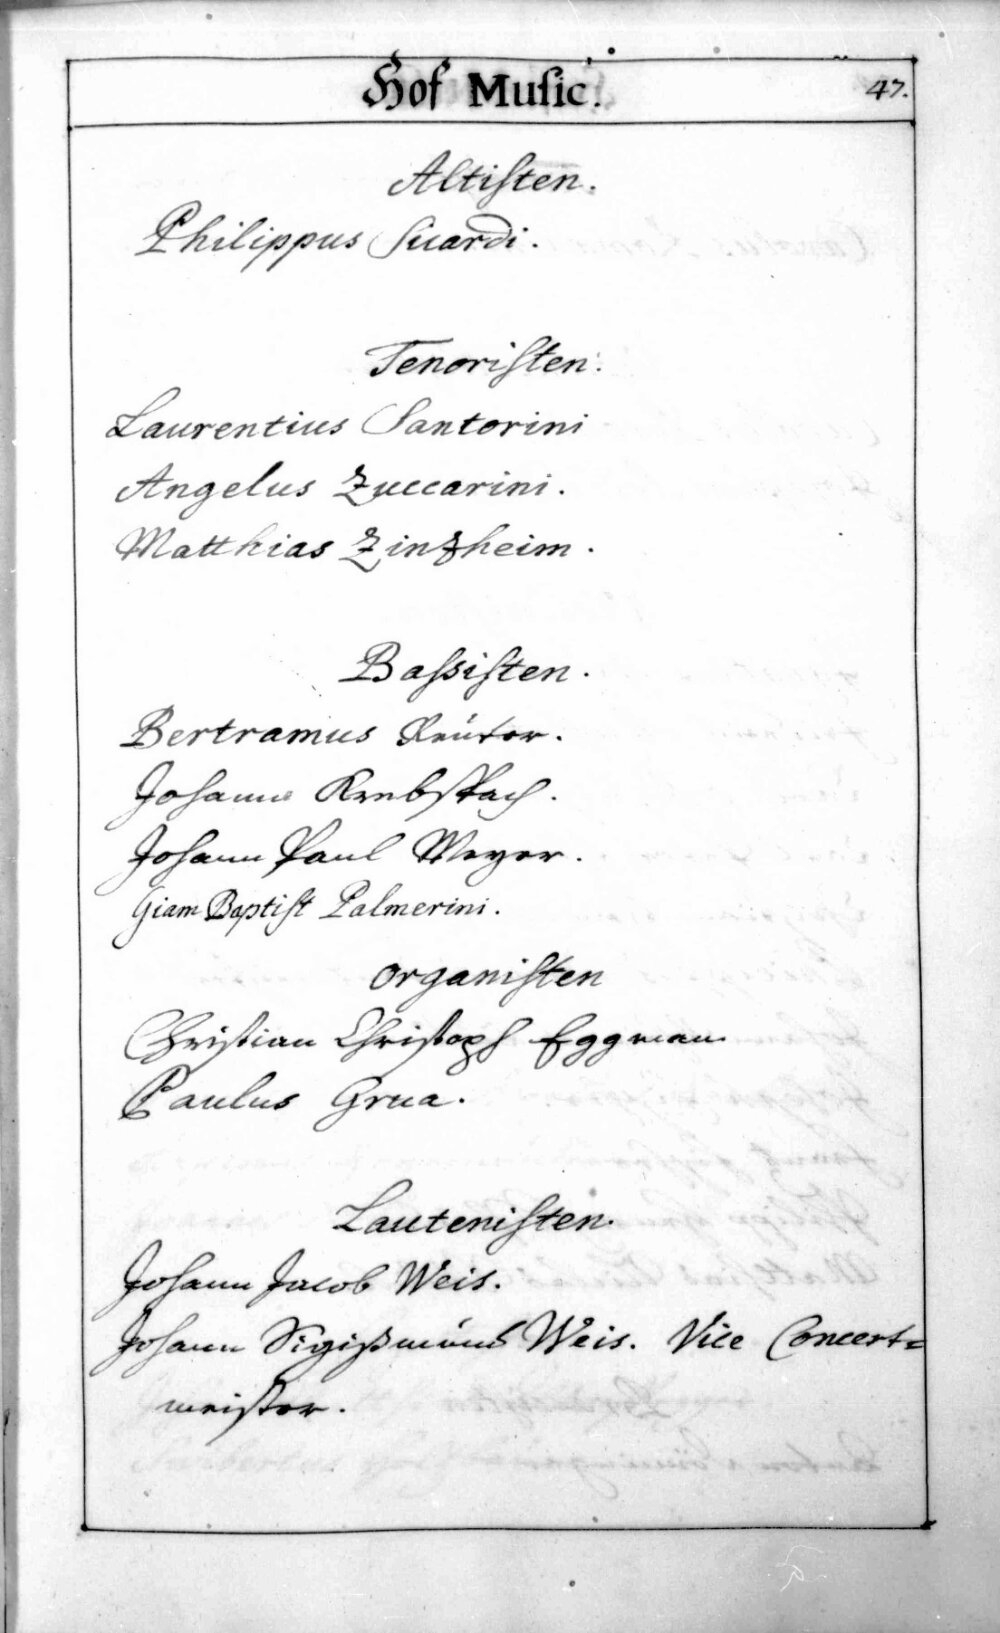 Hof Music.
47.
Altisten.
Philippus Suardi.
Tenoristen.
Laurentius Santorini
Angelus Zuccarini.
Matthias Zintzheim.
Bassisten.
Bertramus Reüter.
Johann Krebsbach.
Johann Paul Meyer.
Giam Baptist Palmerini.
Organisten
Christian Christoph Eggman
Paulus Grua.
Lautenisten.
Johann Jacob Weis.
Johann Sigißmund Weis. Vice Concert=
meister.